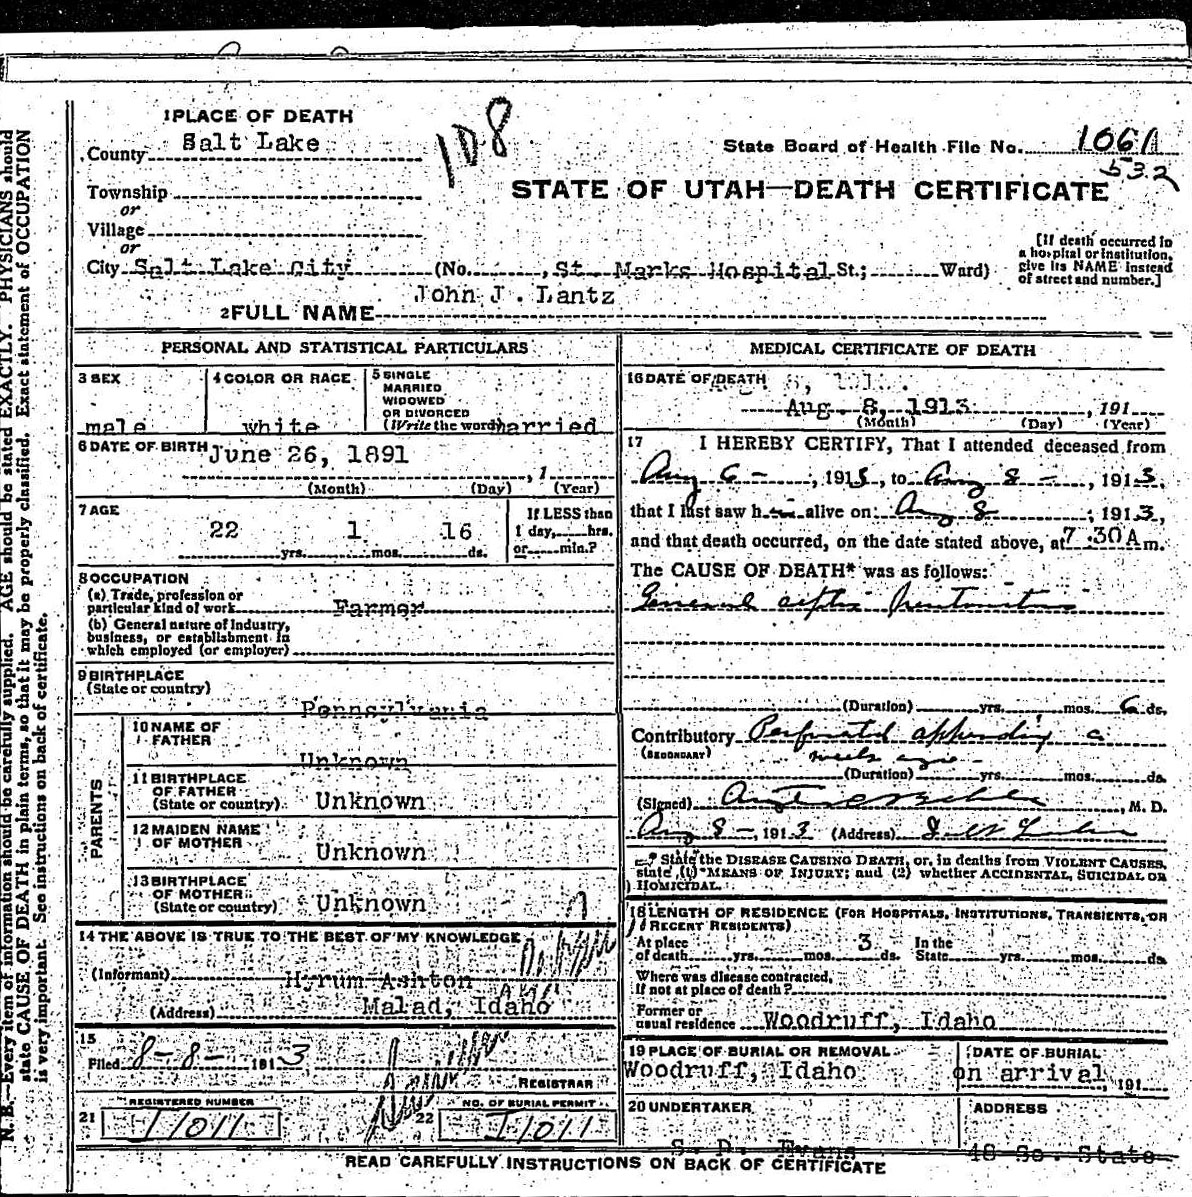 1 PLACE OF DEATH
County Salt Lake
108
State Board of Health File No. 1061
532
Township
STATE OF UTAH—DEATH CERTIFICATE
or
Village
or
City Salt Lake City (No. , St. Marks Hospital St.; Ward)
[If death occurred in a hospital or institution, give its NAME instead of street and number.]
2 FULL NAME John J. Lantz
PERSONAL AND STATISTICAL PARTICULARS
3 SEX
male
4 COLOR OR RACE
white
5 SINGLE
MARRIED
WIDOWED
OR DIVORCED
(Write the word) married
6 DATE OF BIRTH June 26, 1891
, 1
(Month) (Day) (Year)
7 AGE
22 yrs. 1 mos. 16 ds.
If LESS than
1 day, hrs.
or min.?
8 OCCUPATION
(a) Trade, profession or
particular kind of work Farmer
(b) General nature of Industry,
business, or establishment in
which employed (or employer)
9 BIRTHPLACE
(State or country)
Pennsylvania
PARENTS
10 NAME OF
FATHER
Unknown
11 BIRTHPLACE
OF FATHER
(State or country) Unknown
12 MAIDEN NAME
OF MOTHER Unknown
13 BIRTHPLACE
OF MOTHER
(State or country) Unknown
14 THE ABOVE IS TRUE TO THE BEST OF MY KNOWLEDGE
(Informant) Hyrum Ashton
(Address) Malad, Idaho
15
Filed 8-8- 1913
REGISTRAR
21 REGISTERED NUMBER
I 1011
22 NO. OF BURIAL PERMIT
I 1011
MEDICAL CERTIFICATE OF DEATH
16 DATE OF DEATH
Aug. 8, 1913 , 191
(Month) (Day) (Year)
17 I HEREBY CERTIFY, That I attended deceased from
Aug 6 – , 1913, to Aug 8 – , 1913,
that I last saw him alive on Aug 8 , 1913,
and that death occurred, on the date stated above, at 7.30 A m.
The CAUSE OF DEATH* was as follows:
General septic peritonitis
(Duration) yrs. mos. 6 ds.
Contributory Perforated appendix a
(SECONDARY) week ago –
(Duration) yrs. mos. ds.
(Signed) , M. D.
Aug 8 –, 1913 (Address)
* State the DISEASE CAUSING DEATH, or, in deaths from VIOLENT CAUSES,
state (1) MEANS OF INJURY; and (2) whether ACCIDENTAL, SUICIDAL OR
HOMICIDAL.
18 LENGTH OF RESIDENCE (FOR HOSPITALS, INSTITUTIONS, TRANSIENTS, OR
RECENT RESIDENTS)
At place In the
of death yrs. mos. 3 ds. State yrs. mos. ds.
Where was disease contracted,
If not at place of death?
Former or
usual residence Woodruff, Idaho
19 PLACE OF BURIAL OR REMOVAL
Woodruff, Idaho
DATE OF BURIAL
on arrival , 191
20 UNDERTAKER
S. D. Evans
ADDRESS
48 So. State
READ CAREFULLY INSTRUCTIONS ON BACK OF CERTIFICATE
N. B.—Every item of information should be carefully supplied. AGE should be stated EXACTLY. PHYSICIANS should
state CAUSE OF DEATH in plain terms, so that it may be properly classified. Exact statement of OCCUPATION
is very important. See instructions on back of certificate.